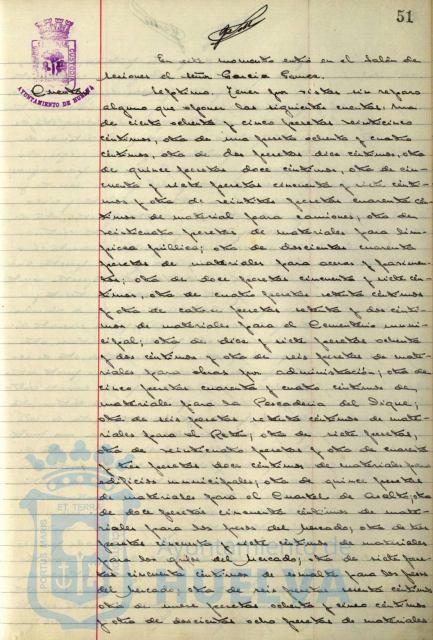 51
En este momento entró en el Salón de
sesiones el señor García Ramos.
Cuentas
AYUNTAMIENTO DE HUELVA
Séptimo. Tener por vistas sin reparo
alguno que oponer las siguientes cuentas: una
de ciento ochenta y cinco pesetas veinticinco
céntimos, otra de una peseta ochenta y cuatro
céntimos, otra de dos pesetas diez céntimos, otra
de quince pesetas doce céntimos, otra de cin-
cuenta y siete pesetas cincuenta y siete cénti-
mos y otra de veintitres pesetas cuarenta cén-
timos de material para camiones; otra de
veinticuatro pesetas de materiales para lim-
pieza pública; otra de doscientas cuarenta
pesetas de materiales para aceras y pavimen-
tos; otra de doce pesetas cincuenta y siete cén-
timos, otra de cuatro pesetas setenta céntimos
y otra de catorce pesetas setenta y dos cénti-
mos de materiales para el Cementerio muni-
cipal; otra de diez y siete pesetas ochenta
y dos céntimos y otra de seis pesetas de mate-
riales para obras por administración; otra de
cinco pesetas cuarenta y cuatro céntimos de
materiales para la Pescadería del Dique;
otra de seis pesetas setenta céntimos de mate-
riales para el otra de siete pesetas,
otra de veinticuatro pesetas y otra de cuaren-
ta y tres pesetas doce céntimos de materiales para
edificios municipales; otra de quince pesetas
de materiales para el Cuartel de Asalto; otra
de doce pesetas cincuenta céntimos de mate-
riales para los pesos del Mercado; otra de tres
pesetas cincuenta y siete céntimos de materiales
para los grifos del Mercado; otra de siete pese-
tas cincuenta céntimos de esmalte para los pesos
del Mercado; otra de seis pesetas céntimos
otra de nueve pesetas ochenta y cinco céntimos
y otra de doscientas ocho pesetas de materiales
PORTUS MARIS ET TERRAE CUSTODIA
Ayuntamiento de
HUELVA